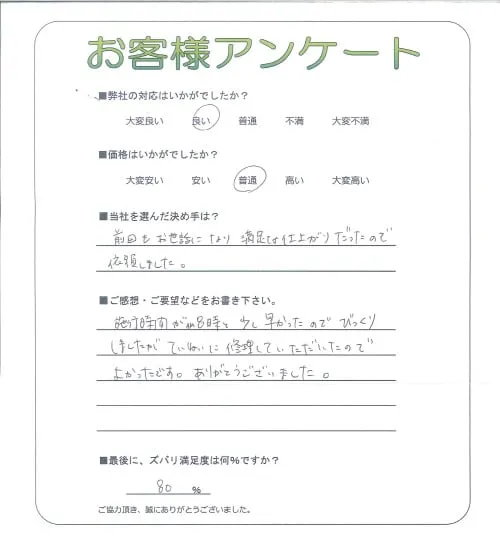 お客様アンケート
■弊社の対応はいかがでしたか？
大変良い 良い 普通 不満 大変不満
■価格はいかがでしたか？
大変安い 安い 普通 高い 大変高い
■当社を選んだ決め手は？
前回もお世話になり 満足な仕上がりだったので
依頼しました。
■ご感想・ご要望などをお書き下さい。
施行時間がAM8時と 少し早かったので びっくり
しましたが ていねいに 修理していただいたので
よかったです。ありがとうございました。
■最後に、ズバリ満足度は何％ですか？
80 ％
ご協力頂き、誠にありがとうございました。